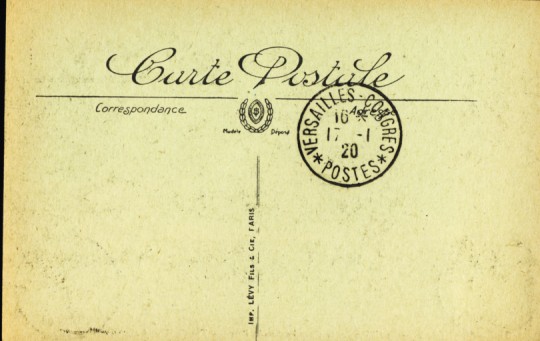 Carte Postale
Correspondance
Adresse
Modèle Déposé
VERSAILLES-CONGRES
16 *
17 -1
20
* POSTES *
IMP. LÉVY FILS & CIE, PARIS